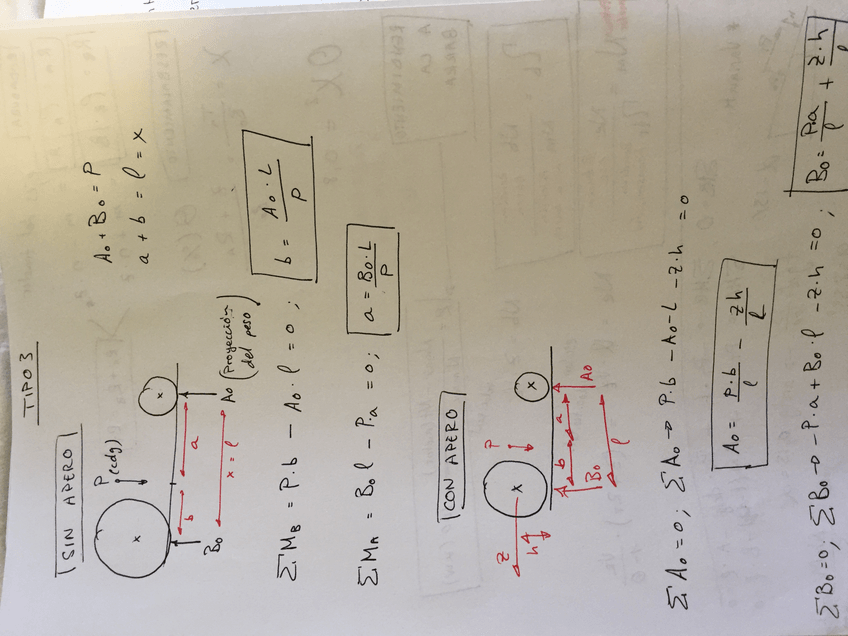 TIPO 3
SIN APERO
P (cdg)
x
x
b
a
x = l
B₀
A₀ (Proyección del peso)
A₀ + B₀ = P
a + b = l = x
ΣM_B = P·b - A₀·l = 0; b = A₀·L / P
ΣM_A = B₀ l - P·a = 0; a = B₀·L / P
CON APERO
P
x
x
z
h
b
a
B₀
A₀
l
ΣA₀ = 0; ΣA₀ → P·b - A₀·L - z·h = 0
A₀ = P·b / l - zh / l
ΣB₀ = 0; ΣB₀ → -P·a + B₀·l - z·h = 0; B₀ = P·a / l + z·h / l